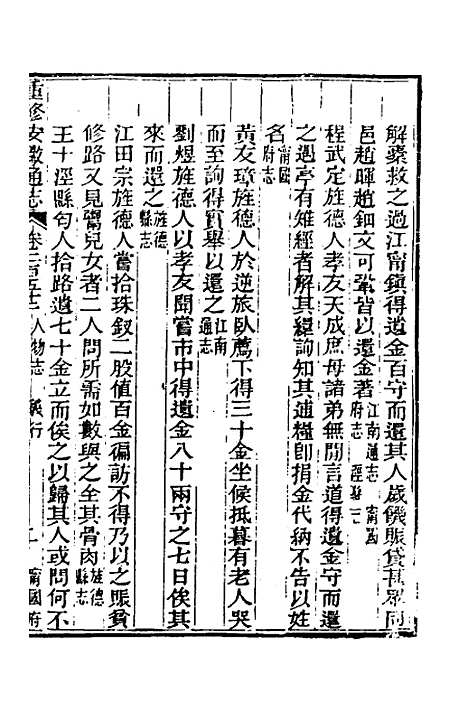 解橐救之過江甯鎮得遺金百守而還其人歲饑賑貸甚眾同
邑趙暉趙鈿文可鞏皆以還金著江南通志甯國府志涇縣志
程武定旌德人孝友天成庶母諸弟無閒言道得遺金守而還
之過亭有雉經者解其繯詢知其逋糧卽捐金代納不告以姓
名甯國府志
黃友瓊旌德人於逆旅臥薦下得三十金坐候抵暮有老人哭
而至詢得實舉以還之江南通志
劉煜旌德人以孝友聞嘗市中得遺金八十兩守之七日俟其
來而還之旌德縣志
江田宗旌德人嘗拾珠釵二股值百金徧訪不得乃以之賑貧
修路又見鬻兒女者二人問所需如數與之全其骨肉旌德縣志
王十涇縣匄人拾路遺七十金立而俟之以歸其人或問何不
重修安徽通志 卷二百五十二 人物志 義行 二 甯國府